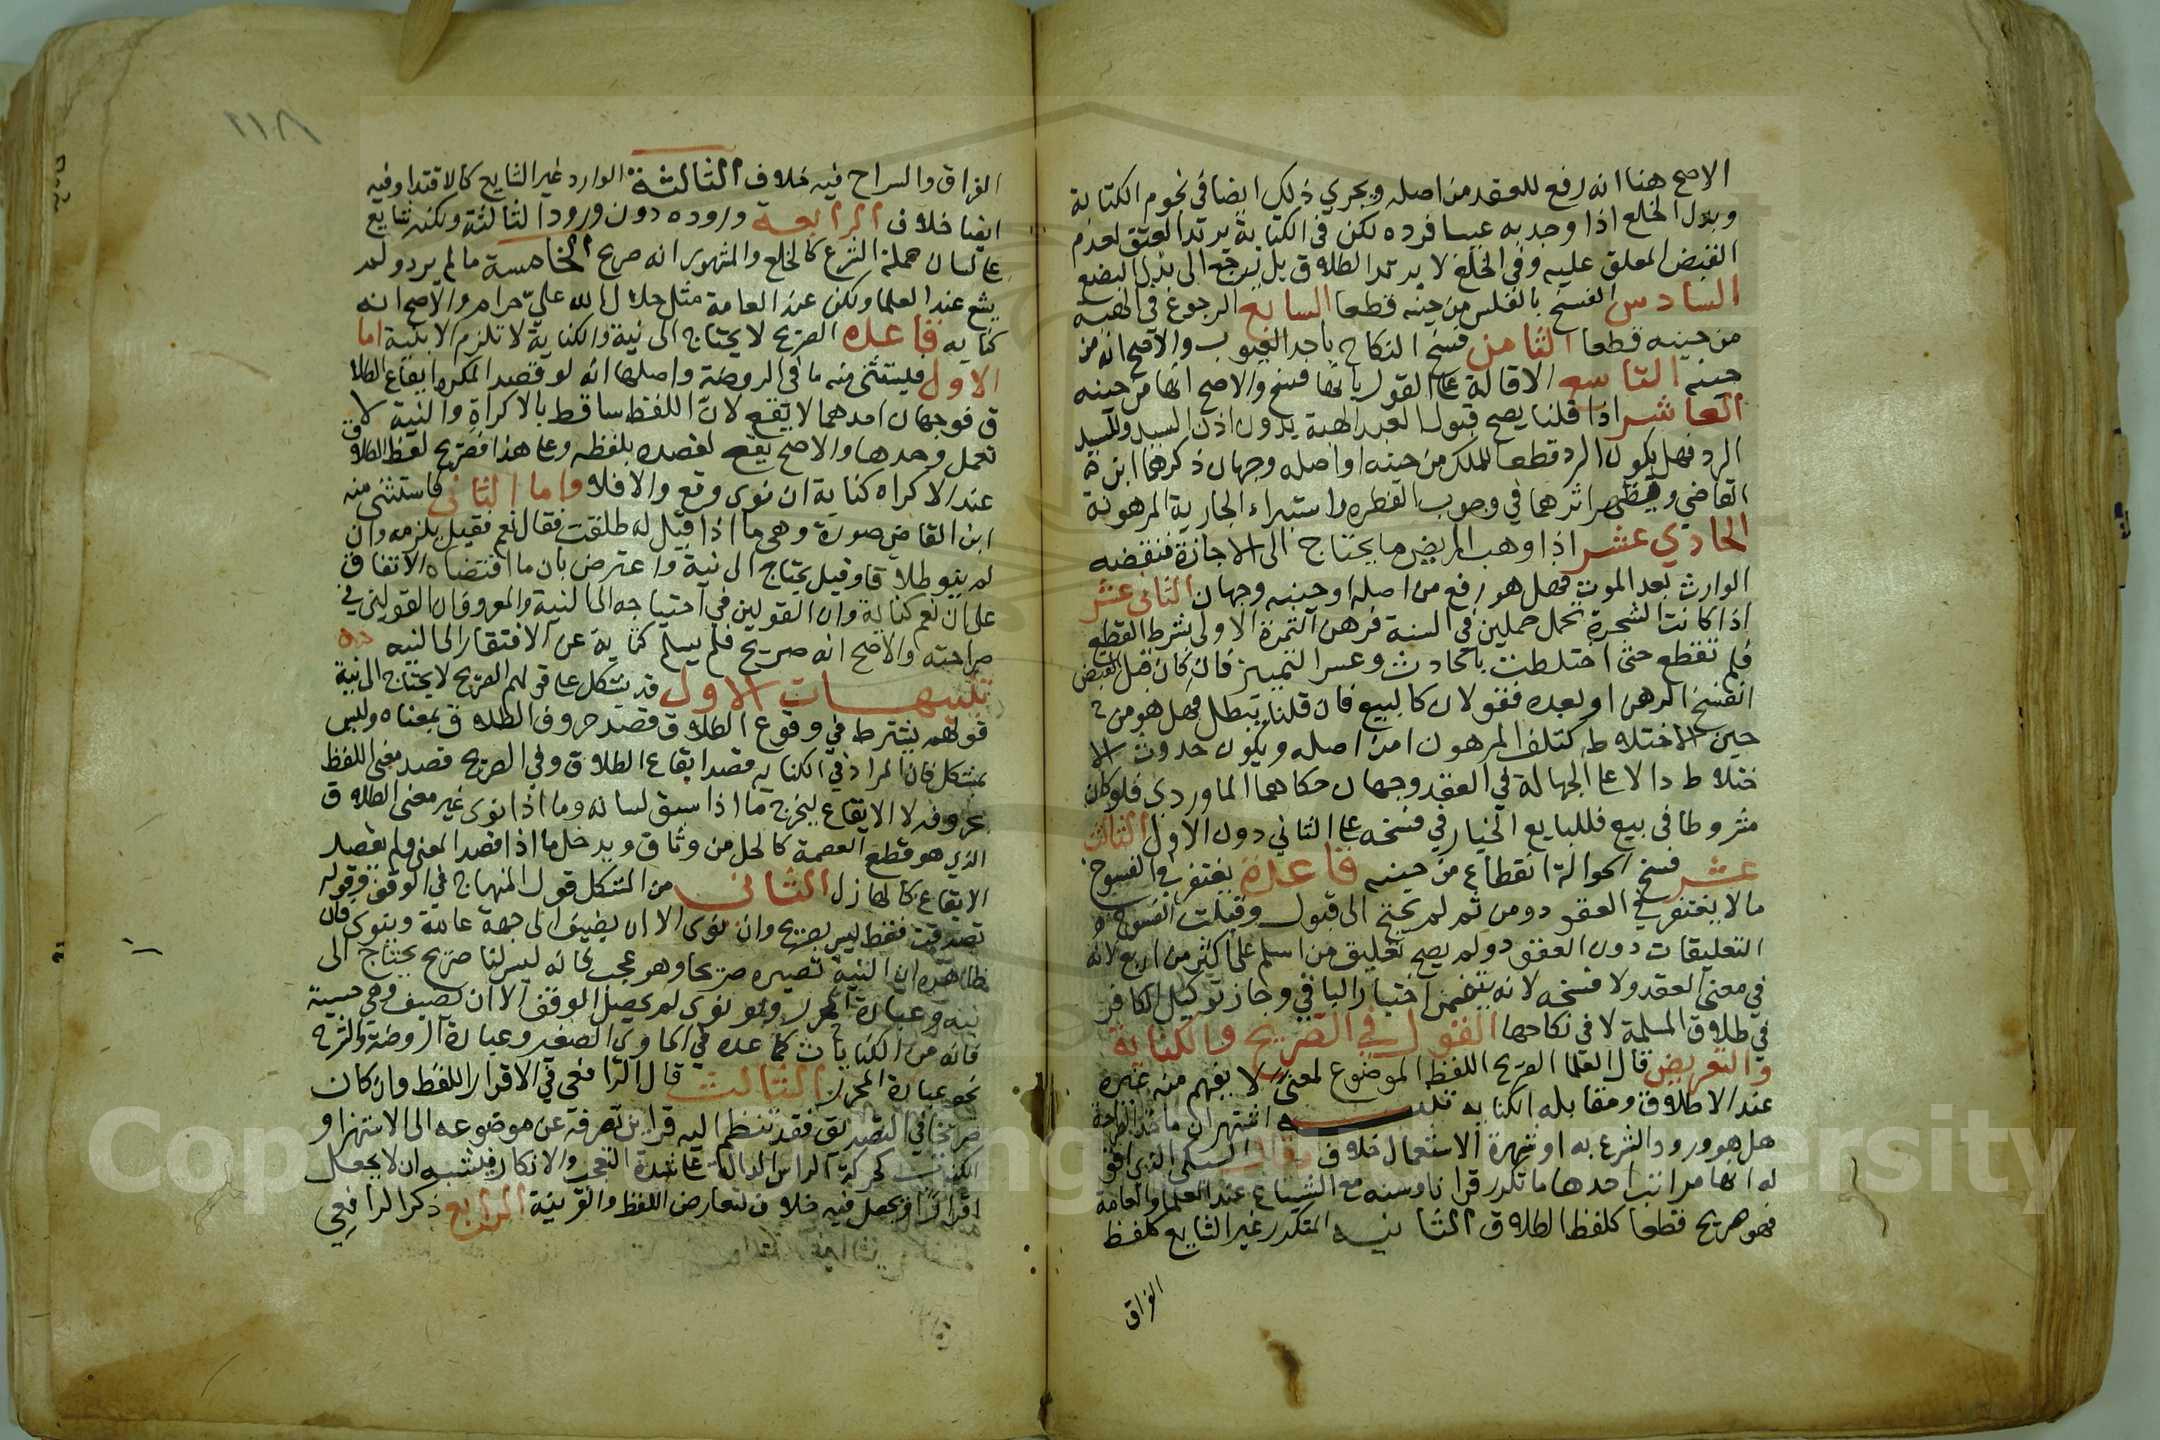 الاصح هنا انه رفع للعقد من اصله ويجري ذلك ايضا في نجوم الكتابة
وبدل الخلع اذا وجد به عيبا فرده لكن في الكتابة يرتد العتق لعدم
القبض المعلق عليه وفي الخلع لا يرتد الطلاق بل يرجع الى بدل البضع
السادس الفسخ بالفلس من حينه قطعا السابع الرجوع في الهبة
من حينه قطعا الثامن فسخ النكاح باحد العيوب والاصح انه من
حينه التاسع الاقالة على القول بانها فسخ والاصح انها من حينه
العاشر اذا قلنا يصح قبول العبد الهبة بدون اذن السيد وللسيد
الرد فهل يكون الرد قطعا للملك من حينه او اصله وجهان ذكرهما ابن
القاضي ويظهر اثرهما في وجوب الفطره واستبراء الجارية المرهونة
الحادي عشر اذا وهب المريض ما يحتاج الى الاجازة فنقضه
الوارث بعد الموت فهل هو رفع من اصله او حينه وجهان الثاني عشر
اذا كانت الشجرة تحمل حملين في السنة فرهن الثمرة الاولى بشرط القطع
فلم تقطع حتى اختلطت بالحادث وعسر التمييز فان كان قبل القبض
انفسخ الرهن او بعده فقولان كالبيع فان قلنا يبطل فهل هو من
حين الاختلاط كتلف المرهون امن اصله ويكون حدوث الا
ختلاط دالا على الجهالة في العقد وجهان حكاهما الماوردي فلو كان
مشروطا في بيع فللبايع الخيار في فسخه على الثاني دون الاول الثالث
عشر فسخ الحوالة انقطاع من حينه قاعدة يغتفر في الفسوخ
ما لا يغتفر في العقود ومن ثم لم يحتج الى قبول وقبلت الفسوخ
التعليقات دون العقود ولم يصح تعليق من اسلم على اكثر من اربع لانه
في معنى العقد ولا فسخه لانه يتضمن اختيار الباقي وجاز توكيل الكافر
في طلاق المسلمة لا في نكاحها القول في الصريح والكناية
والتعريض قال العلما الصريح اللفظ الموضوع لمعنى لا يفهم منه غيره
عند الاطلاق ومقابله الكناية تنبيه اشتهر ان ماخذ الصراحة
هل هو ورود الشرع به او شهرة الاستعمال خلاف قال السبكي الذي اقول
له انها مراتب احدها ما تكرر قرانا وسنه مع الشياع عند العلما والعامة
فهو صريح قطعا كلفظ الطلاق الثانيه المتكرر غير الشايع كلفظ
الفراق
٢١٨
الفراق والسراح فيه خلاف الثالثة الوارد غير الشايع كالافتدا وفيه
ايضا خلاف الرابعة وروده دون ورود الثالثة ولكنه شايع
على لسان حملة الشرع كالخلع والمشهور انه صريح الخامسة ما لم يرد ولم
يشع عند العلما ولكن عند العامة مثل حلال الله عليّ حرام والاصح انه
كنايه قاعده الصريح لا يحتاج الى نية والكناية لا تلزم الا بنية اما
الاول فيستثنى منه ما في الروضة واصلها انه لو قصد المكره ايقاع الطلا
ق فوجهان احدهما لا يقع لان اللفظ ساقط بالاكراه والنية لا
تعمل وحدها والاصح يقع لقصده بلفظه وعلى هذا فصريح لفظ الطلاق
عند الاكراه كناية ان نوى وقع والا فلا واما الثاني فاستثنى منه
ابن القاص صورة وهي ما اذا قيل له طلقت فقال نعم فقيل يلزمه وان
لم ينو طلاقا وقيل يحتاج الى نية واعترض بان ما اقتضاه الاتفاق
على ان نعم كناية وان القولين في احتياجه الى النية والمعروف ان القولين في
صراحته والاصح انه صريح فلم يسلم كناية عن الافتقار الى النيه
تنبيهات الاول قد يشكل على قولهم الصريح لا يحتاج الى نية
قولهم يشترط في وقوع الطلاق قصد حروف الطلاق بمعناه وليس
بمشكل فان المراد في الكنايه قصد ايقاع الطلاق وفي الصريح قصد معنى اللفظ
بحروفه لا الايقاع ليخرج ما اذا سبق لسانه وما اذا نوى غير معنى الطلاق
الذي هو قطع العصمة كالحل من وثاق ويدخل ما اذا قصد المعنى ولم يقصد
الايقاع كالهازل الثاني من المشكل قول المنهاج في الوقف وقوله
تصدقت فقط ليس بصريح وان نوى الا ان يضيف الى جهة عامة وينوي فان
ظاهره ان النية تصيره صريحا وهو عجب فانه ليس لنا صريح يحتاج الى
نيه وعبارة المحرر ولو نوى لم يحصل الوقف الا ان يضيف وهي حسنة
فانه من الكنايات كما عده في الحاوي الصغير وعبارة الروضة والشرح
نحو عبارة المحرر الثالث قال الرافعي في الاقرار اللفظ وان كان
صريحا في التصديق فقد تنظم اليه قراين تصرفه عن موضوعه الى الاستهزا و
التكذيب كحركة الراس الدالة على شدة التعجب والانكار فيشبه ان لا يجعل
اقرارا او يجعل فيه خلاف لتعارض اللفظ والقرينة الرابع ذكر الرافعي